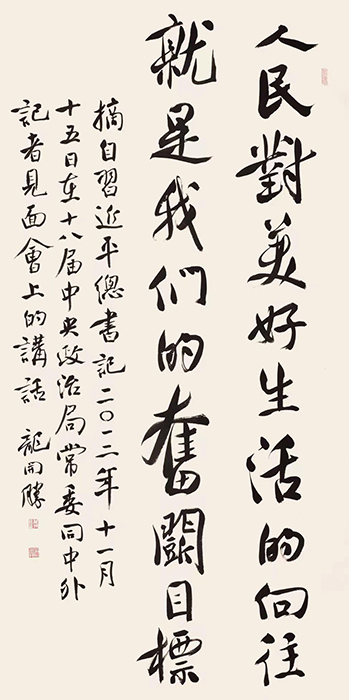 人民對美好生活的向往
就是我們的奮鬪目標
摘自習近平總書記二〇一二年十一月
十五日在十八届中央政治局常委同中外
記者見面會上的講話 龍開勝